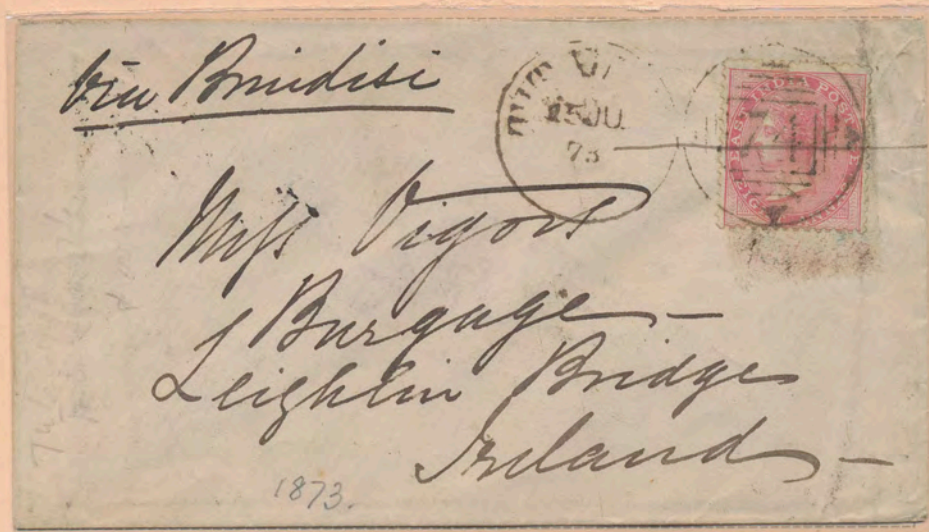 via Brindisi
25 JU
73
EAST INDIA POSTAGE
Miss Vigors
Burgage
Leighlin Bridge
Ireland
1873.